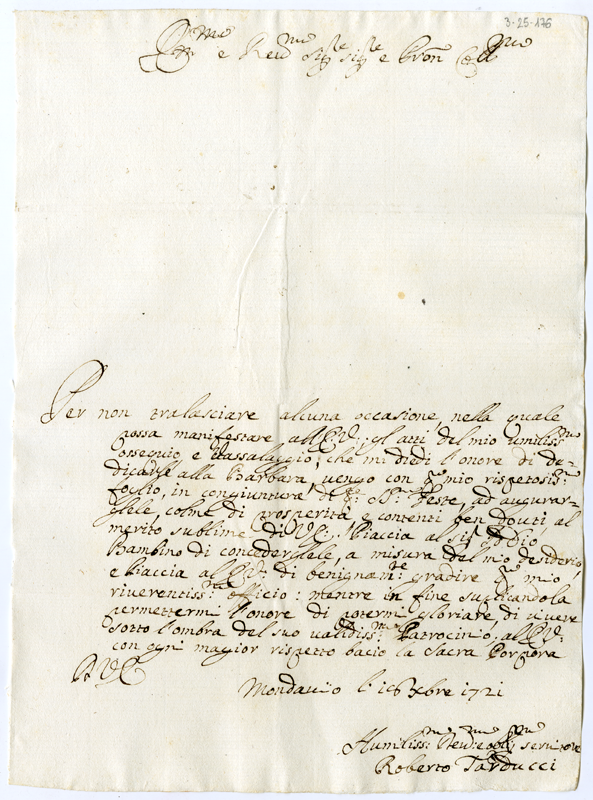 3-25-176
Em.mo e Rev.mo Sig.re Sig.re e Pron Col.mo
Per non tralasciare alcuna occasione nella quale
possa manifestare all'E.V. gl'atti del mio umiliss.mo
ossequio e vassalaggio, che mi diedi l'onore di de-
dicarle alla Barbara, vengo con q.o mio rispetosis.mo
foglio, in congiuntura di q.e S.e Feste, ad augurar-
glele, colme di prosperità e contenti ben douti al
merito sublime di V.E. Piaccia al Sig. Dio
Bambino di concederglele, a misura del mio desiderio,
e piaccia all'E.V. di benignam.te gradire q.o mio
riverentiss.o officio: mentre in fine suplicandola
permettermi l'onore di potermi gloriare, di vivere
sotto l'ombra del suo validiss.mo Patrocinio, all'E.V.
con ogn maggior rispetto bacio la Sacra Porpora
D.V.E.
Mondavio li 16 Xbre 1721
Humiliss.mo Dev.mo e obl.mo servitore
Roberto Tarducci